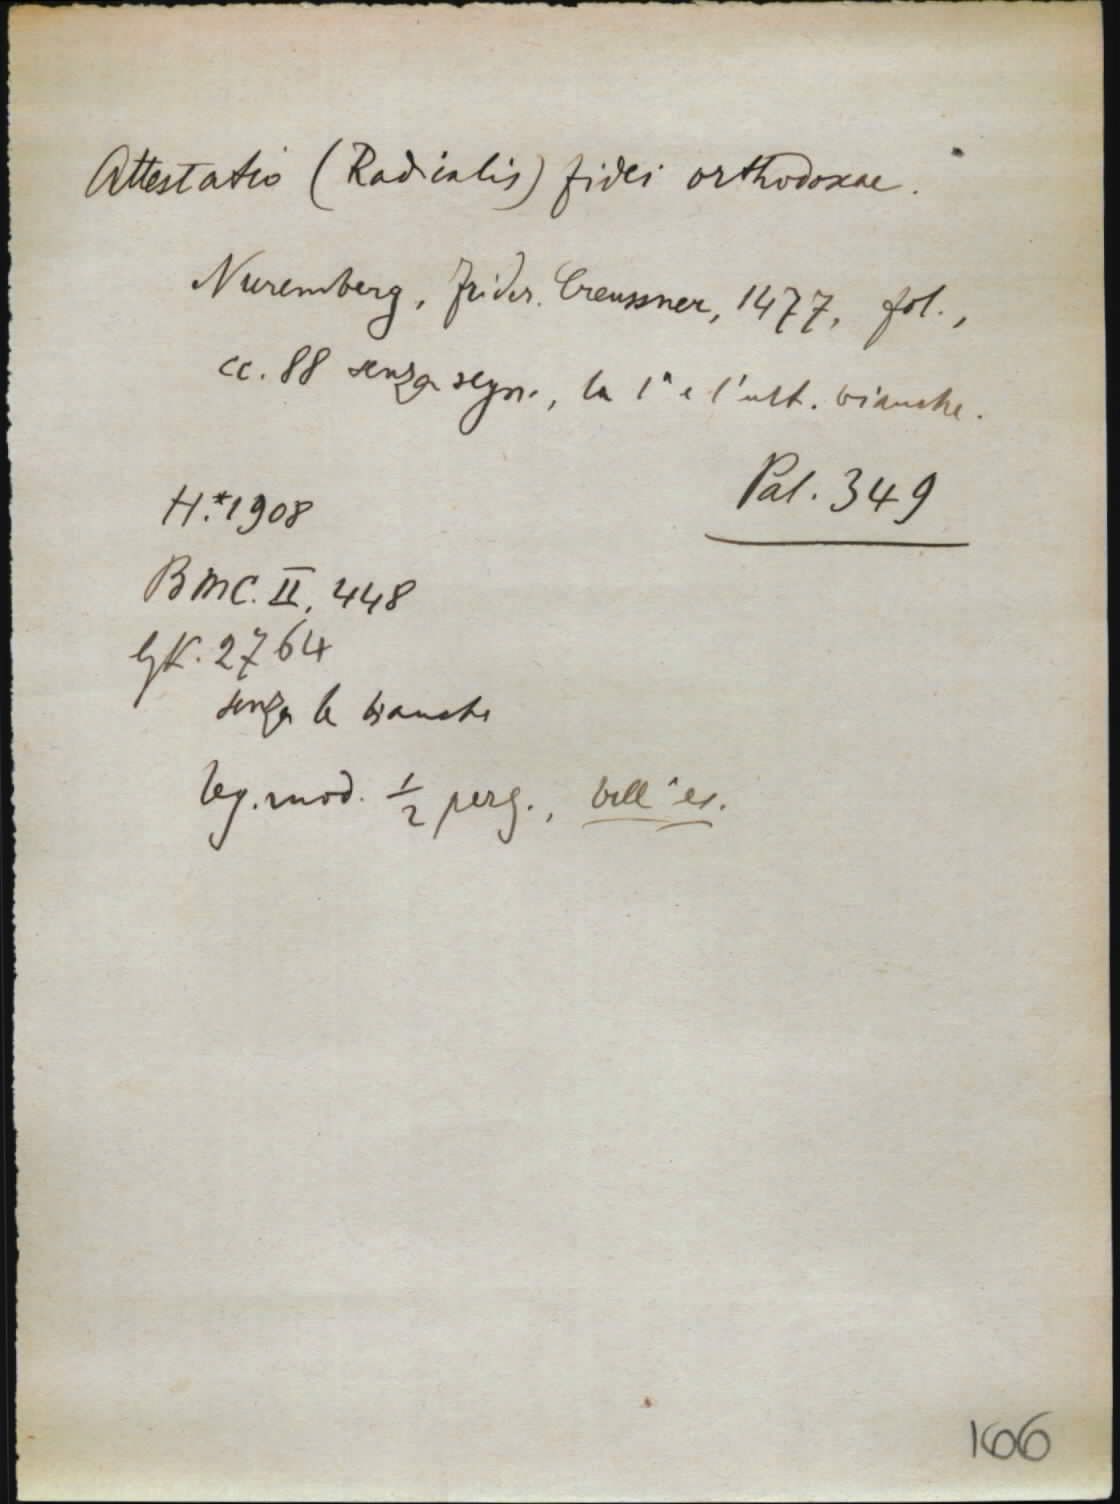 Attestatio (Radicalis) fidei orthodoxae.
Nuremberg, Frider. Creussner, 1477, fol.,
cc. 88 senza segn., la 1ª e l'ult. bianche.
Pal. 349
H.*1908
BMC. II, 448
GK. 2764
senza le bianche
leg. mod. 1/2 perg., bell^ es.
166